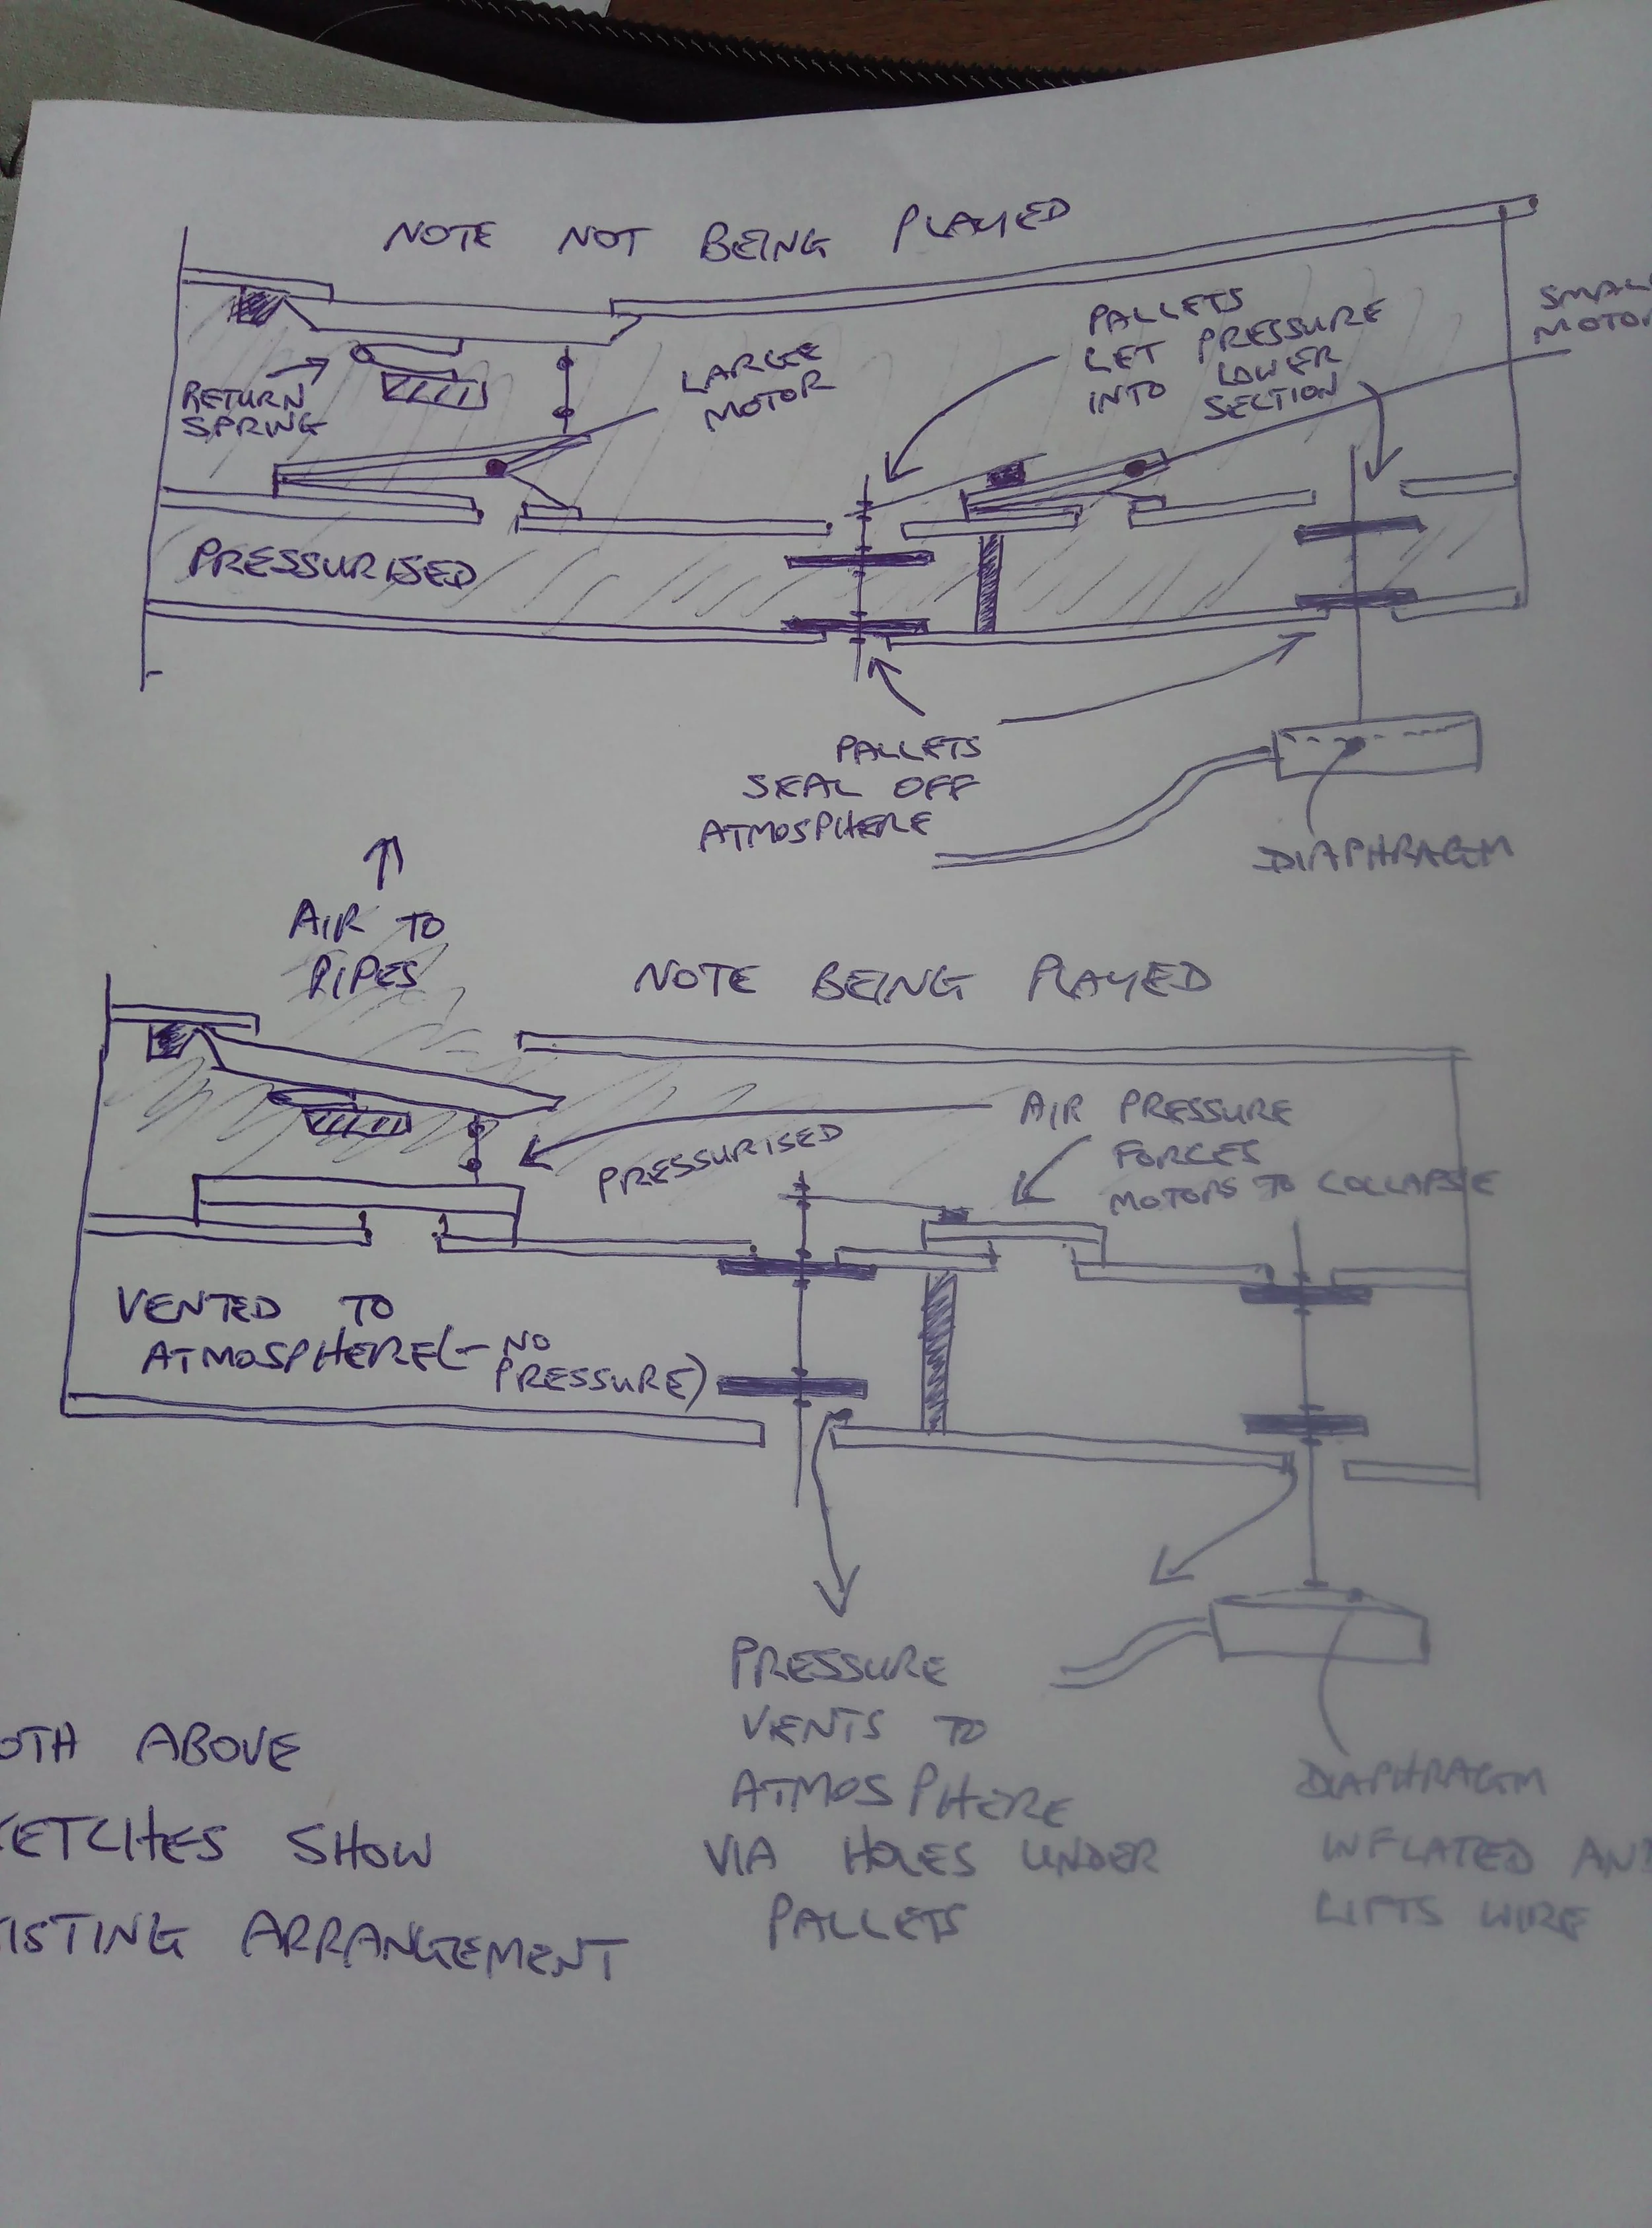 NOTE NOT BEING PLAYED
RETURN
SPRING
LARGE
MOTOR
PALLETS
LET PRESSURE
INTO LOWER
SECTION
SMAL
MOTO
PRESSURISED
PALLETS
SEAL OFF
ATMOSPHERE
DIAPHRAGM
AIR TO
PIPES
NOTE BEING PLAYED
AIR PRESSURE
FORCES
MOTORS TO COLLAPSE
PRESSURISED
VENTED TO
ATMOSPHERE (- NO
PRESSURE)
PRESSURE
VENTS TO
ATMOSPHERE
VIA HOLES UNDER
PALLETS
DIAPHRAGM
INFLATED AN
LIFTS WIRE
OTH ABOVE
KETCHES SHOW
XISTING ARRANGEMENT